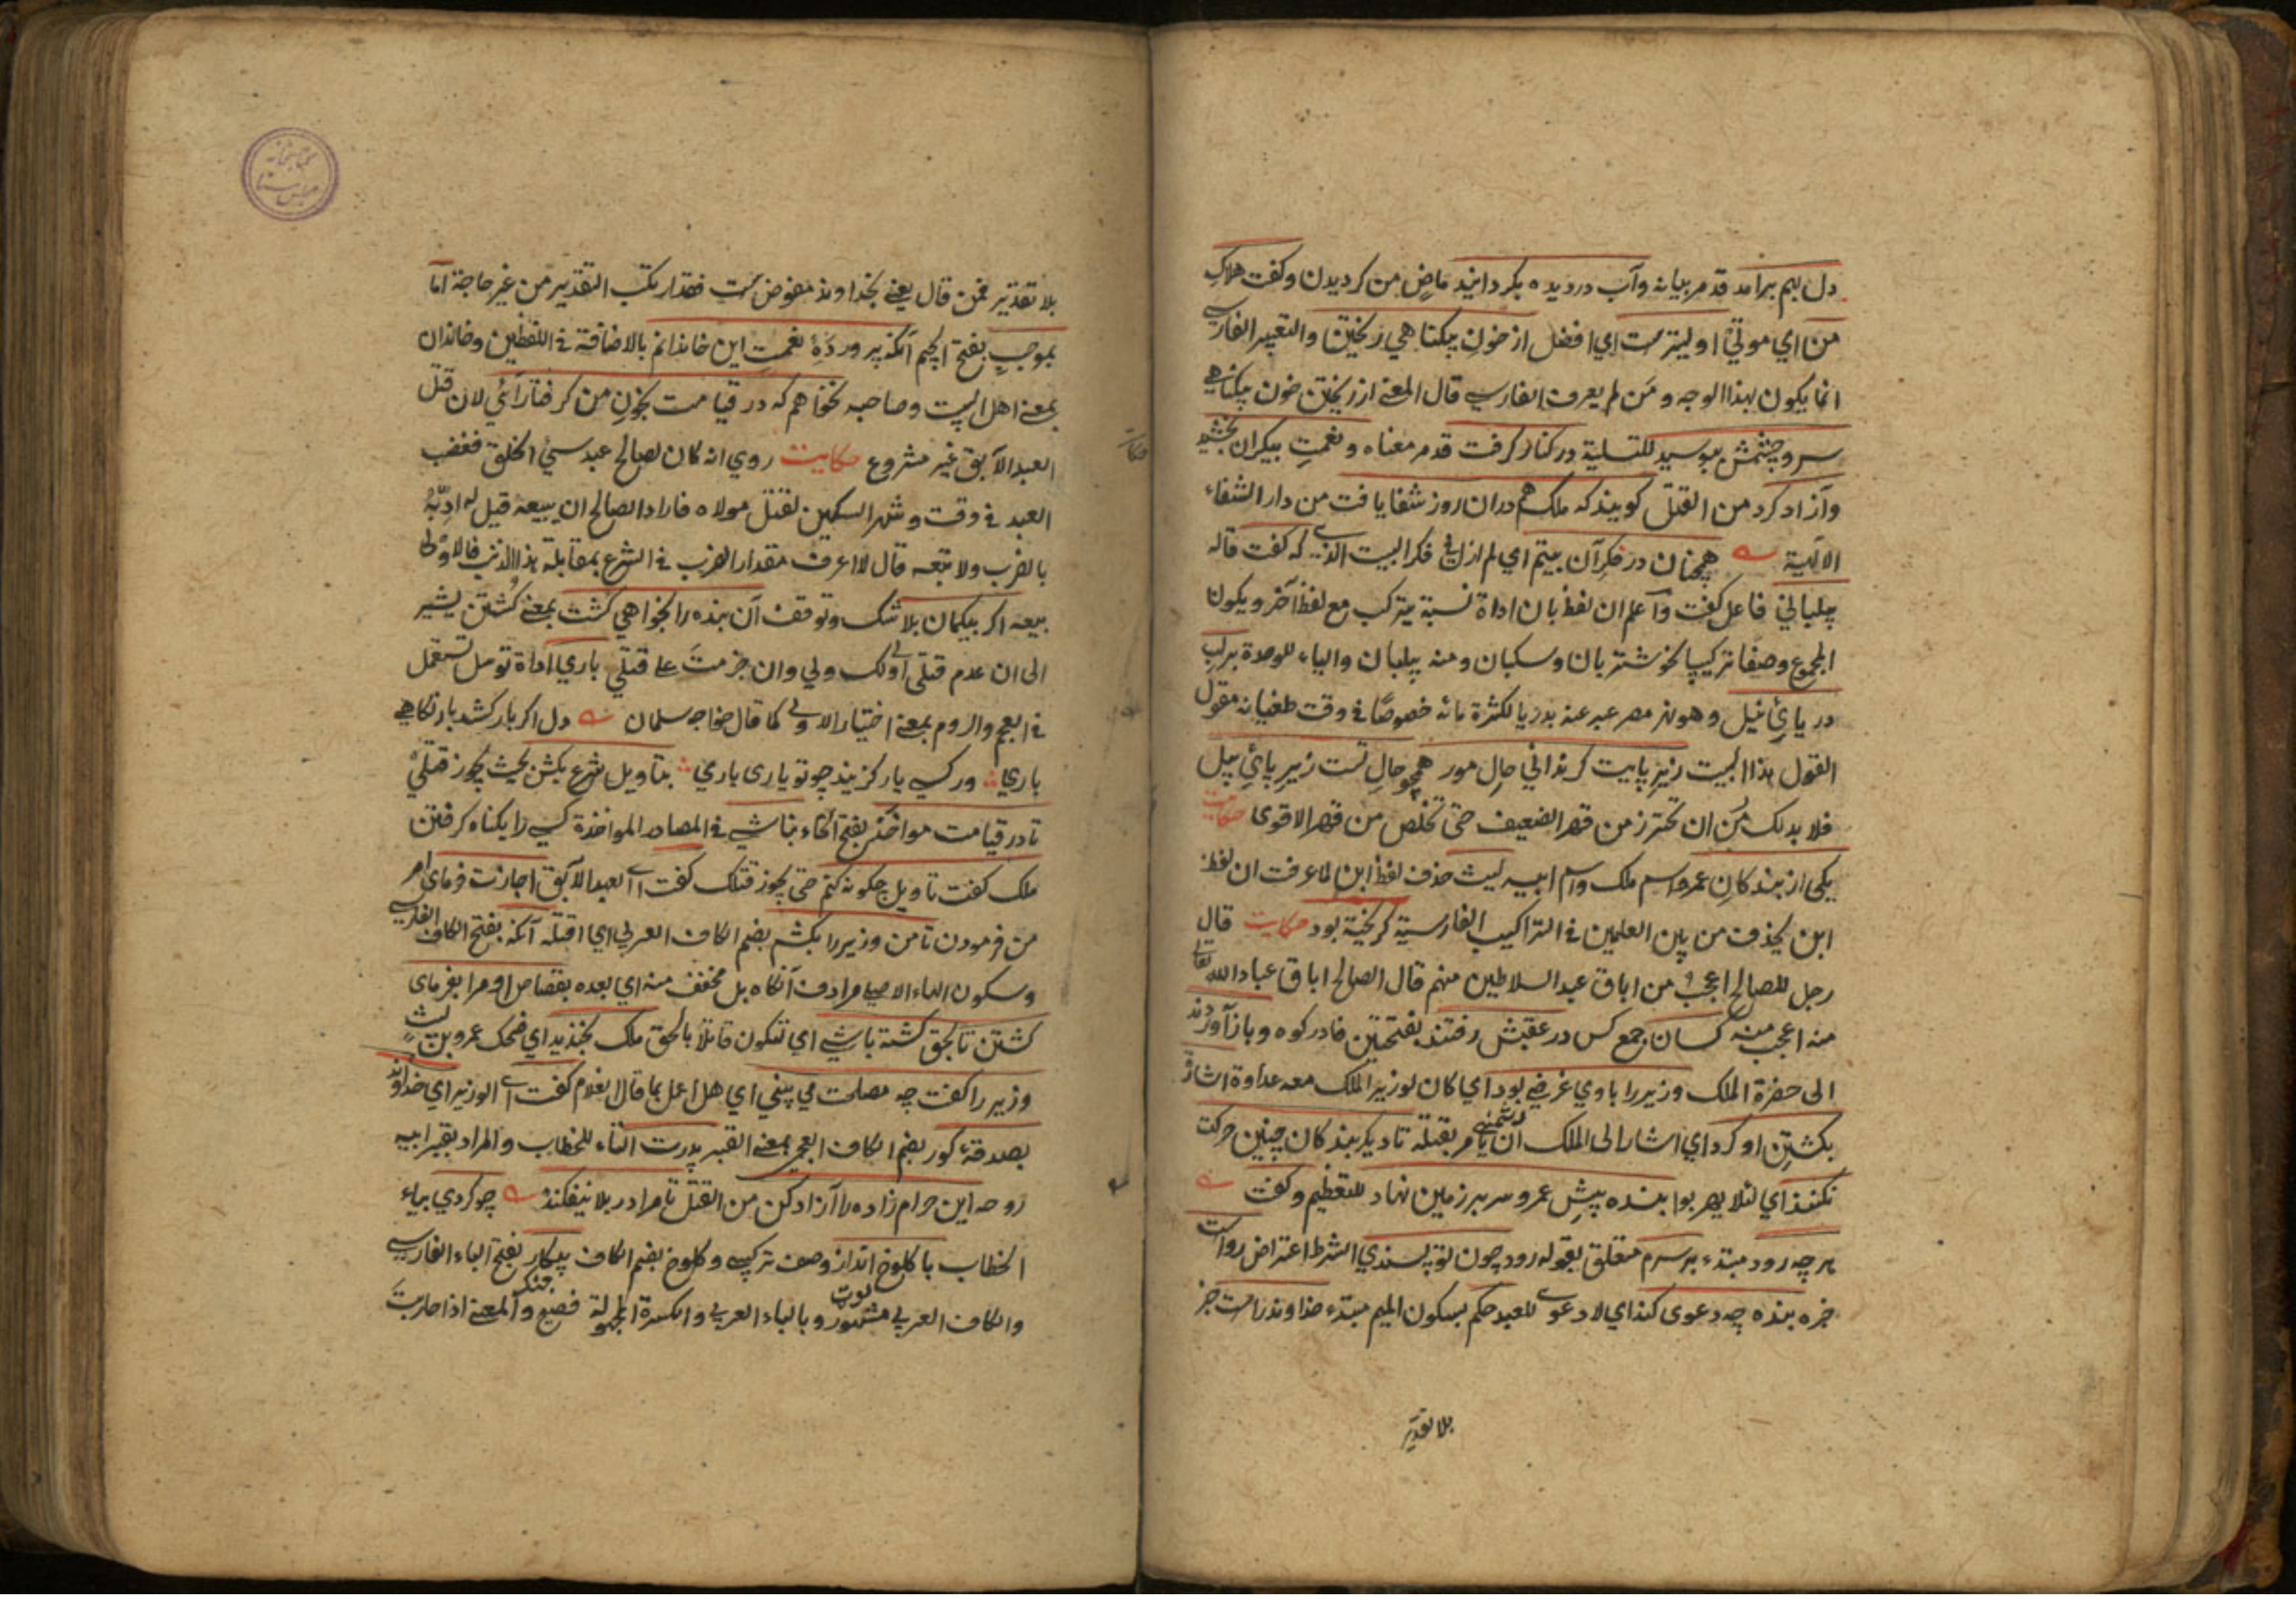 دل بهم برآمد قد مر بیانه وآب در دیده بگردانید ماض من کردیدن وکفت هلاک
من ای موتی اولیترست ای افضل از خون بیکناهی ریختن والتعبیر الفارسی
انما یکون بهذا الوجه ومن لم یعرف الفارسی قال المعنی از ریختن خون بیکناهی
سر وچشمش ببوسید للتسلیة در کنار کرفت قد مر معناه ونعمت بیکران بخشید
وآزاد کرد من القتل کویند که ملک هم دران روز شفا یافت من دار الشفاء
الالٓهیة همچنان در فکر آن بیتم ای لم ازل فی فکر البیت الذی که کفت قاله
پیلبانی فاعل کفت واعلم ان لفظ بان اداة نسبة یترکب مع لفظ آخر ویکون
المجموع وصفا ترکیبیا نحو شتربان وسکبان ومنه پیلبان والیاء للوحدة برلب
دریای نیل وهو نهر مصر عبر عنه بدریا لکثرة مائه خصوصًا فی وقت طغیانه مقول
القول هذا البیت زیر پایت کر بدانی حال مور همچو حال تست زیر پای پیل
فلا بد لک من ان تحترز من قهر الضعیف حتی تخلص من قهر الاقوی حکایت
یکی از بندکان عمرو اسم ملک واسم ابیه لیث حذف لفظ ابن لما عرفت ان لفظ
ابن یحذف من بین العلمین فی التراکیب الفارسیة کریخته بود حکایت قال
رجل للصالح اعجب من اباق عبد السلاطین منهم قال الصالح اباق عباد الله تعالی
منه اعجب منه کسان جمع کس در عقبش رفتند بفتحتین فادرکوه وباز آوردند
الی حضرة الملک وزیر را با وی غرضی بود ای کان لوزیر الملک معه عداوة اشارة
بکشتن او کرد ای اشار الی الملک ان یأمر بقتله تا دیکر بندکان چنین حرکت
نکنند ای لئلا یهربوا بنده پیش عمرو سر بر زمین نهاد للتعظیم وکفت
هرچه رود مبتدء بر سرم متعلق بقوله رود چون تو پسندی الشرط اعتراض رواست
خبره بنده چه دعوی کند ای لا دعوی للعبد حکم بسکون المیم مبتدء خداوند راست خبر
بلا تقدیر
بلا تقدیر فمن قال یعنی بخداوند مفوض است فقد ارتکب التقدیر من غیر حاجة اما
بموجب بفتح الجیم آنکه پروردهٔ نعمت این خاندانم بالاضافة فی اللفظین وخاندان
بمعنی اهل البیت وصاحبه نخواهم که در قیامت بخون من کرفتار آئی لان قتل
العبد الآبق غیر مشروع حکایت روی انه کان لصالح عبد سیئ الخلق فغضب
العبد فی وقت وشهر السکین لقتل مولاه فاراد الصالح ان یبیعه قیل له ادبه
بالضرب ولا تبعه قال لا اعرف مقدار الضرب فی الشرع بمقابلة هذا الذنب فالاولی
بیعه اکر بیکمان بلا شک وتوقف آن بنده را بخواهی کشت بمعنی کشتن یشیر
الی ان عدم قتلی اولی لک ولی وان جزمت علی قتلی باری اداة توسل تستعمل
فی العجم والروم بمعنی اختیار الاولی کما قال خواجه سلمان دل اکر بار کشد بار نکاهی
باری ورکسی یار کزیند چو تو یاری باری بتأویل شرع بکش بحیث یجوز قتلی
تا در قیامت مواخذ بفتح الخاء نباشی فی المصادر المواخذة کسی را بکناه کرفتن
ملک کفت تأویل چکونه کنم حتی یجوز قتلک کفت ای العبد الآبق اجازت فرمای امر
من فرمودن تا من وزیر را بکشم بضم الکاف العربی ای اقتله آنکه بفتح الکاف الفارسی
وسکون الهاء الاصلیه مرادف آنکاه بل مخفف منه ای بعده بقصاص او مرا بفرمای
کشتن تا بحق کشته باشی ای تکون قاتلًا بالحق ملک بخندید ای ضحک عمرو بن لیث
وزیر را کفت چه مصلحت می بینی ای هل اعمل بما قال الغلام کفت ای الوزیر ای خداوند
بصدقهٔ کور بضم الکاف العجمی بمعنی القبر پدرت التاء للخطاب والمراد بقبر ابیه
روحه این حرام زاده را آزاد کن من القتل تا مرا در بلا نیفکند چو کردی بیاء
الخطاب با کلوخ انداز وصف ترکیبی وکلوخ بضم الکاف پیکار بفتح الباء الفارسی
والکاف العربی مشهور وبالباء العربی والکسرة المجهولة فصیح جنک والمعنی اذا حاربت